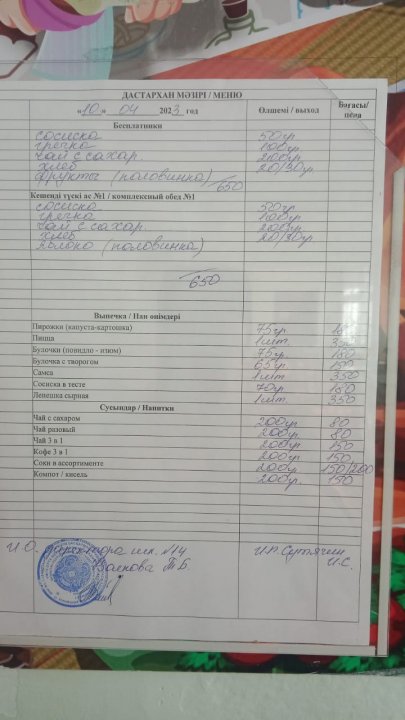 ДАСТАРХАН МӘЗІРІ / МЕНЮ
«10» 04 2023 год Өлшемі / выход Бағасы/ цена
Бесплатники
сосиска 50гр
гречка 100гр
чай с сахар. 200гр
хлеб 20/30гр
фрукты (половинка)
650
Кешенді түскі ас №1 / комплексный обед №1
сосиска 50гр
гречка 100гр
чай с сахар. 200гр
хлеб
яблоко (половинка)
650
Выпечка / Нан өнімдері
Пирожки (капуста-картошка) 75гр
Пицца 1шт. 350
Булочки (повидло - изюм) 75гр 180
Булочка с творогом 65гр
Самса 1шт 350
Сосиска в тесте 70гр 180
Лепешка сырная 1шт. 350
Сусындар / Напитки
Чай с сахаром 200гр 80
Чай разовый 200гр. 80
Чай 3 в 1 200гр 150
Кофе 3 в 1 200гр 150
Соки в ассортименте 200гр 150/200
Компот / кисель 200гр. 150
И.О. директора шк. №14 И.П.
Т.Б. И.С.